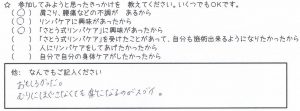 ☆ 参加してみようと思ったきっかけを 教えてください。いくつでもOKです。
(○) 肩こり、腰痛などの不調が あるから
(○) リンパケアに興味があったから
(○) 「さとう式リンパケア」に興味があったから
( ) 「さとう式リンパケア」を受けたことがあって、自分も施術出来るようになりたかったから
( ) 人にリンパケアをしてあげたかったから
( ) 自分で自分の身体ケアがしたかったから
他: なんでもご記入ください
おもしろかった。
むりにほぐさなくても 楽になるのがスゴイ。